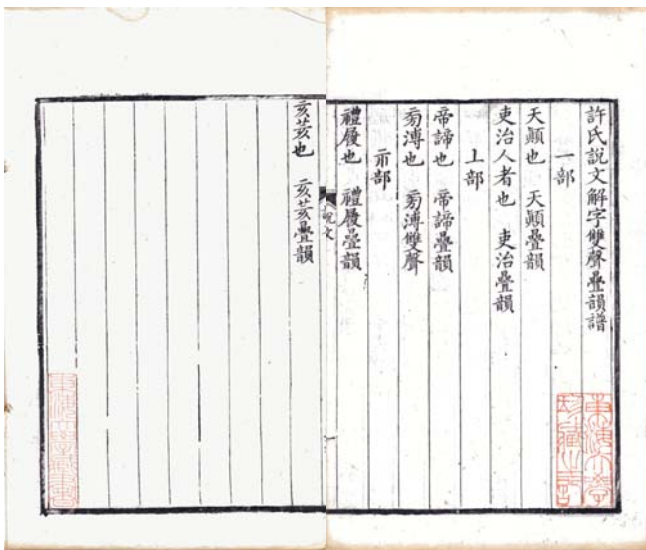 許氏說文解字雙聲疊韻譜
一部
天顚也　天顚疊韻
吏治人者也　吏治疊韻
上部
帝諦也　帝諦疊韻
旁溥也　旁溥雙聲
示部
禮履也　禮履疊韻
說文
亥荄也　亥荄疊韻